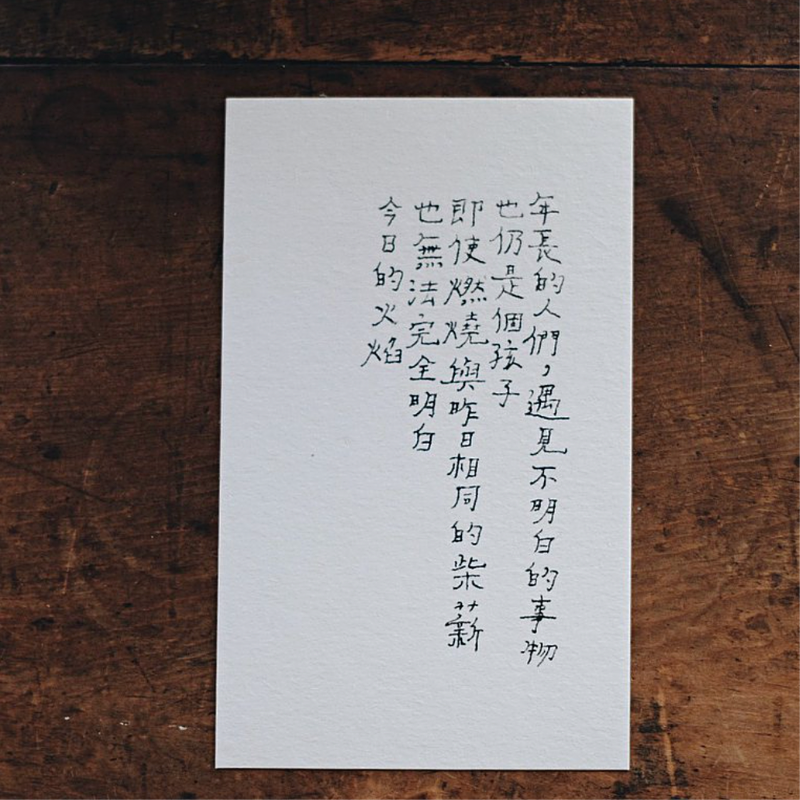 年長的人們，遇見不明白的事物
也仍是個孩子
即使燃燒與昨日相同的柴薪
也無法完全明白
今日的火焰